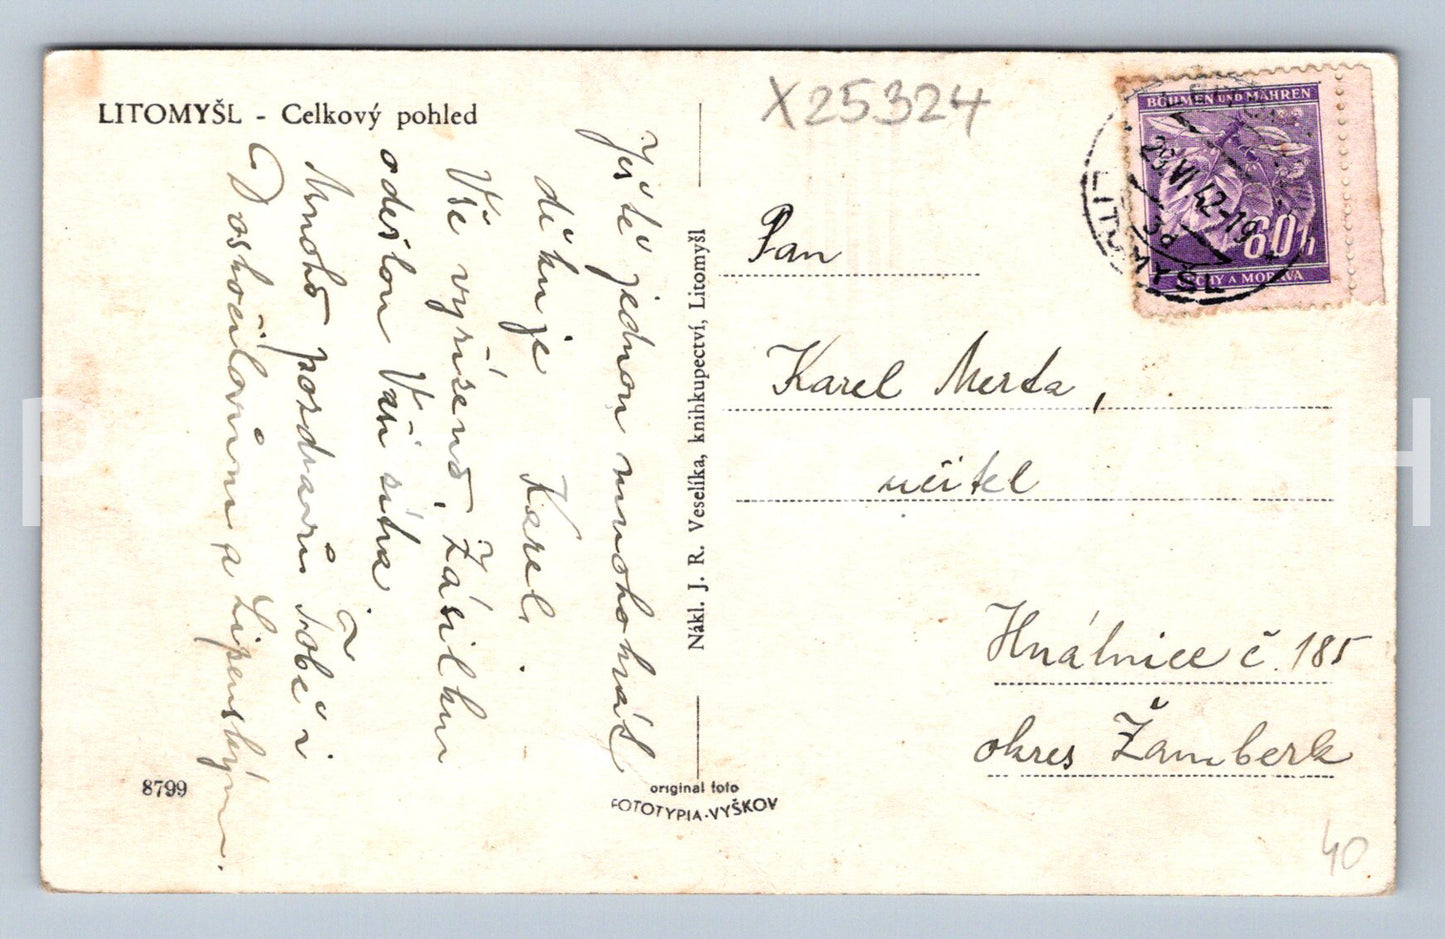 LITOMYŠL - Celkový pohled
X25324
BÖHMEN UND MÄHREN
60h
ČECHY A MORAVA
LITOMYŠL
29.VI.42-19
Pan
Karel Merta,
učitel
Hnátnice č. 185
okres Žamberk
Ještě jednou mnohokrát
děkuje Karel.
Vše vyřízeno, zásilku
odešlou Vaši síťka.
Mnoho pozdravů Tobě i
Doskočilovům a Lipenským.
Nákl. J. R. Veselíka, knihkupectví, Litomyšl
8799
original foto
FOTOTYPIA-VYŠKOV
40